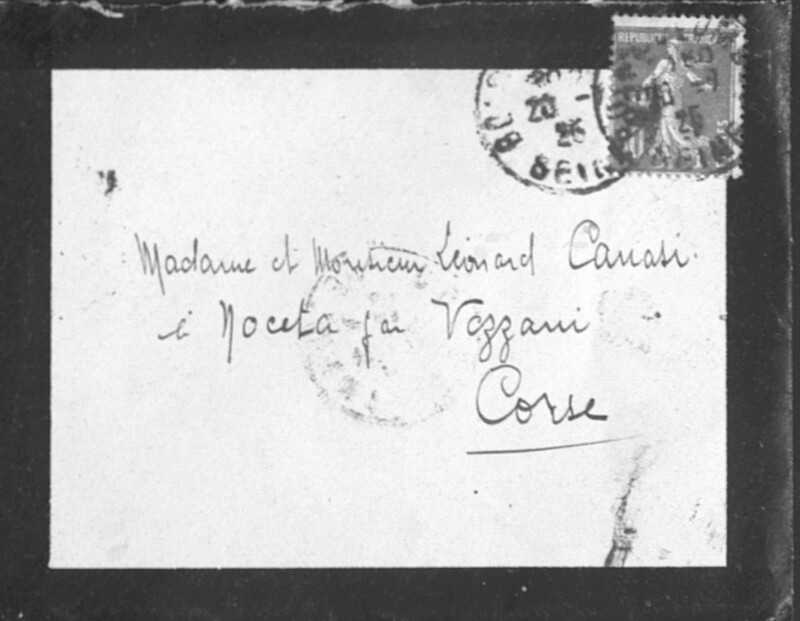 REPUBLIQUE FRANCAISE
20 -1
25
SEINE
Madame et Monsieur Léonard Canasi
à Noceta par Vezzani
Corse